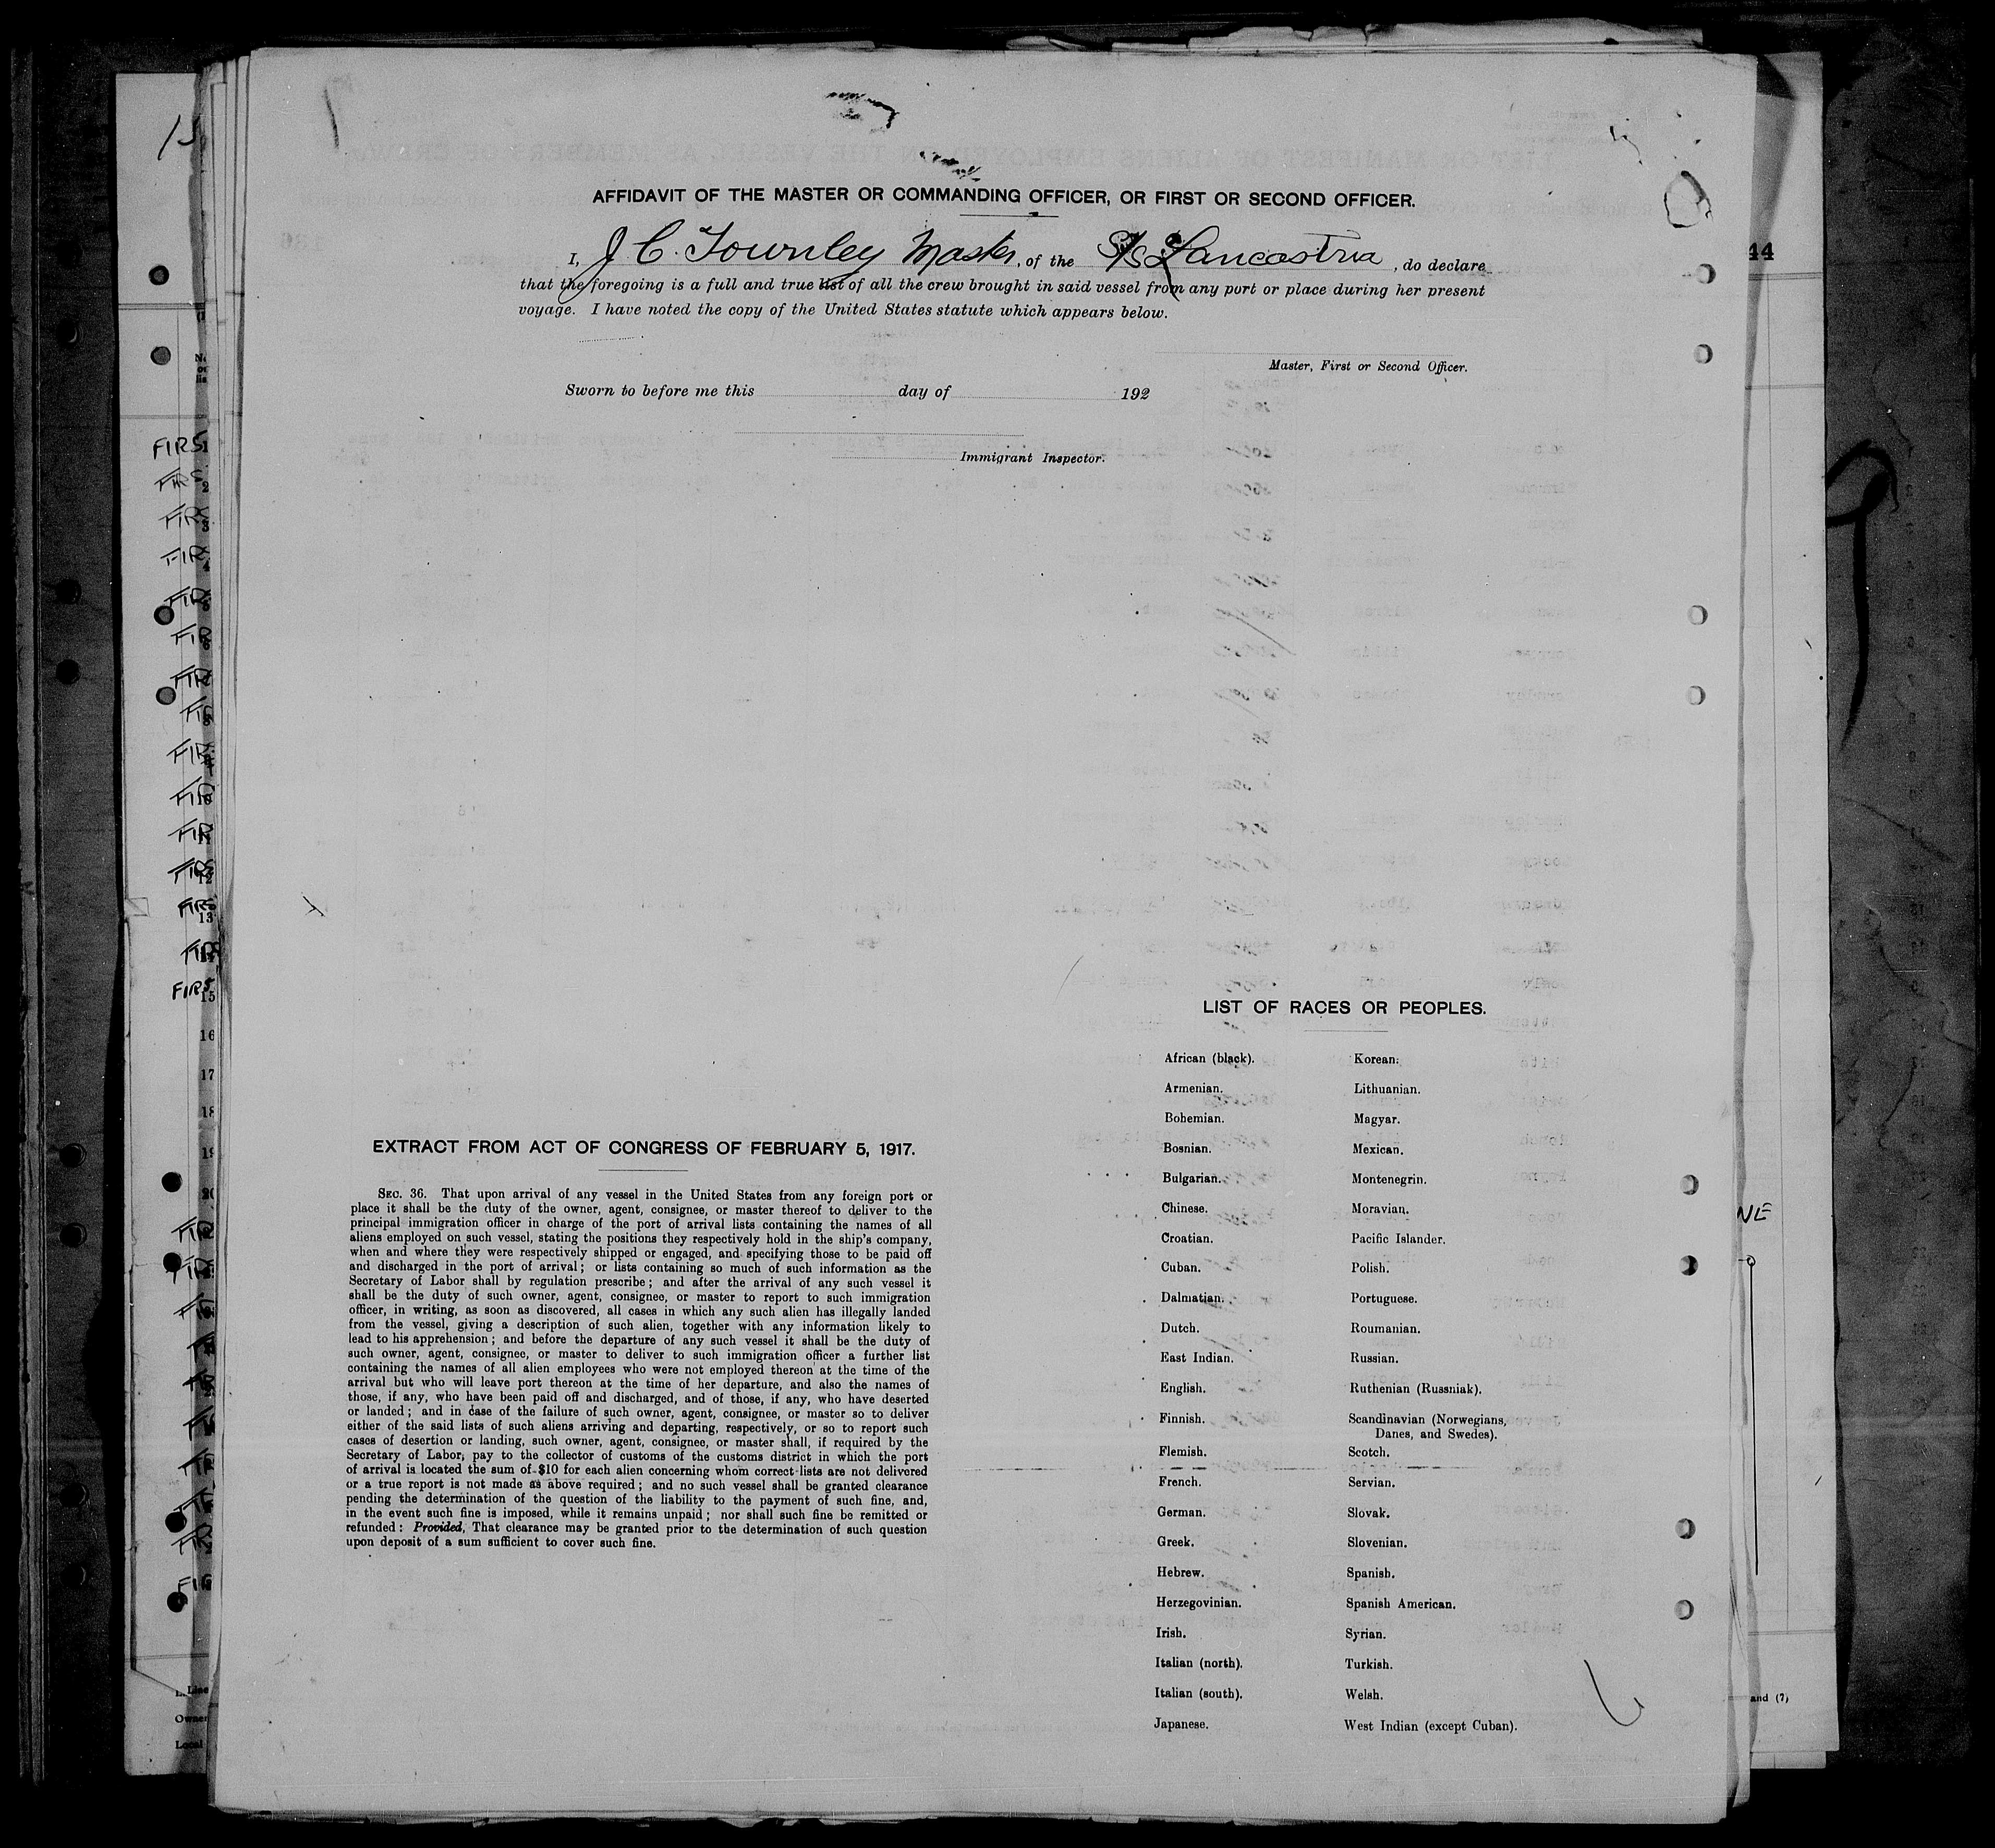 AFFIDAVIT OF THE MASTER OR COMMANDING OFFICER, OR FIRST OR SECOND OFFICER.
I, J C. Townley Master, of the S/S Lancastria, do declare
that the foregoing is a full and true list of all the crew brought in said vessel from any port or place during her present
voyage. I have noted the copy of the United States statute which appears below.
Master, First or Second Officer.
Sworn to before me this day of 192
Immigrant Inspector.
EXTRACT FROM ACT OF CONGRESS OF FEBRUARY 5, 1917.
SEC. 36. That upon arrival of any vessel in the United States from any foreign port or
place it shall be the duty of the owner, agent, consignee, or master thereof to deliver to the
principal immigration officer in charge of the port of arrival lists containing the names of all
aliens employed on such vessel, stating the positions they respectively hold in the ship's company,
when and where they were respectively shipped or engaged, and specifying those to be paid off
and discharged in the port of arrival; or lists containing so much of such information as the
Secretary of Labor shall by regulation prescribe; and after the arrival of any such vessel it
shall be the duty of such owner, agent, consignee, or master to report to such immigration
officer, in writing, as soon as discovered, all cases in which any such alien has illegally landed
from the vessel, giving a description of such alien, together with any information likely to
lead to his apprehension; and before the departure of any such vessel it shall be the duty of
such owner, agent, consignee, or master to deliver to such immigration officer a further list
containing the names of all alien employees who were not employed thereon at the time of the
arrival but who will leave port thereon at the time of her departure, and also the names of
those, if any, who have been paid off and discharged, and of those, if any, who have deserted
or landed; and in case of the failure of such owner, agent, consignee, or master so to deliver
either of the said lists of such aliens arriving and departing, respectively, or so to report such
cases of desertion or landing, such owner, agent, consignee, or master shall, if required by the
Secretary of Labor, pay to the collector of customs of the customs district in which the port
of arrival is located the sum of $10 for each alien concerning whom correct lists are not delivered
or a true report is not made as above required; and no such vessel shall be granted clearance
pending the determination of the question of the liability to the payment of such fine, and,
in the event such fine is imposed, while it remains unpaid; nor shall such fine be remitted or
refunded: Provided, That clearance may be granted prior to the determination of such question
upon deposit of a sum sufficient to cover such fine.
LIST OF RACES OR PEOPLES.
African (black).
Armenian.
Bohemian.
Bosnian.
Bulgarian.
Chinese.
Croatian.
Cuban.
Dalmatian.
Dutch.
East Indian.
English.
Finnish.
Flemish.
French.
German.
Greek.
Hebrew.
Herzegovinian.
Irish.
Italian (north).
Italian (south).
Japanese.
Korean.
Lithuanian.
Magyar.
Mexican.
Montenegrin.
Moravian.
Pacific Islander.
Polish.
Portuguese.
Roumanian.
Russian.
Ruthenian (Russniak).
Scandinavian (Norwegians,
Danes, and Swedes).
Scotch.
Servian.
Slovak.
Slovenian.
Spanish.
Spanish American.
Syrian.
Turkish.
Welsh.
West Indian (except Cuban).
44
and (7)